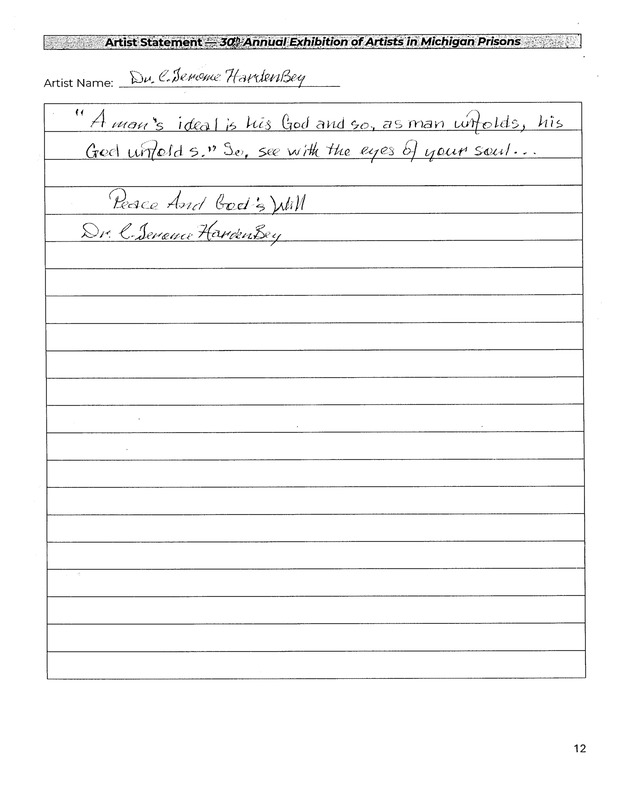 Artist Statement — 30th Annual Exhibition of Artists in Michigan Prisons
Artist Name: Dr. C. Jerome HardenBey
"A man's ideal is his God and so, as man unfolds, his
God unfolds." So, see with the eyes of your soul...
Peace And God's Will
Dr. C. Jerome HardenBey
12